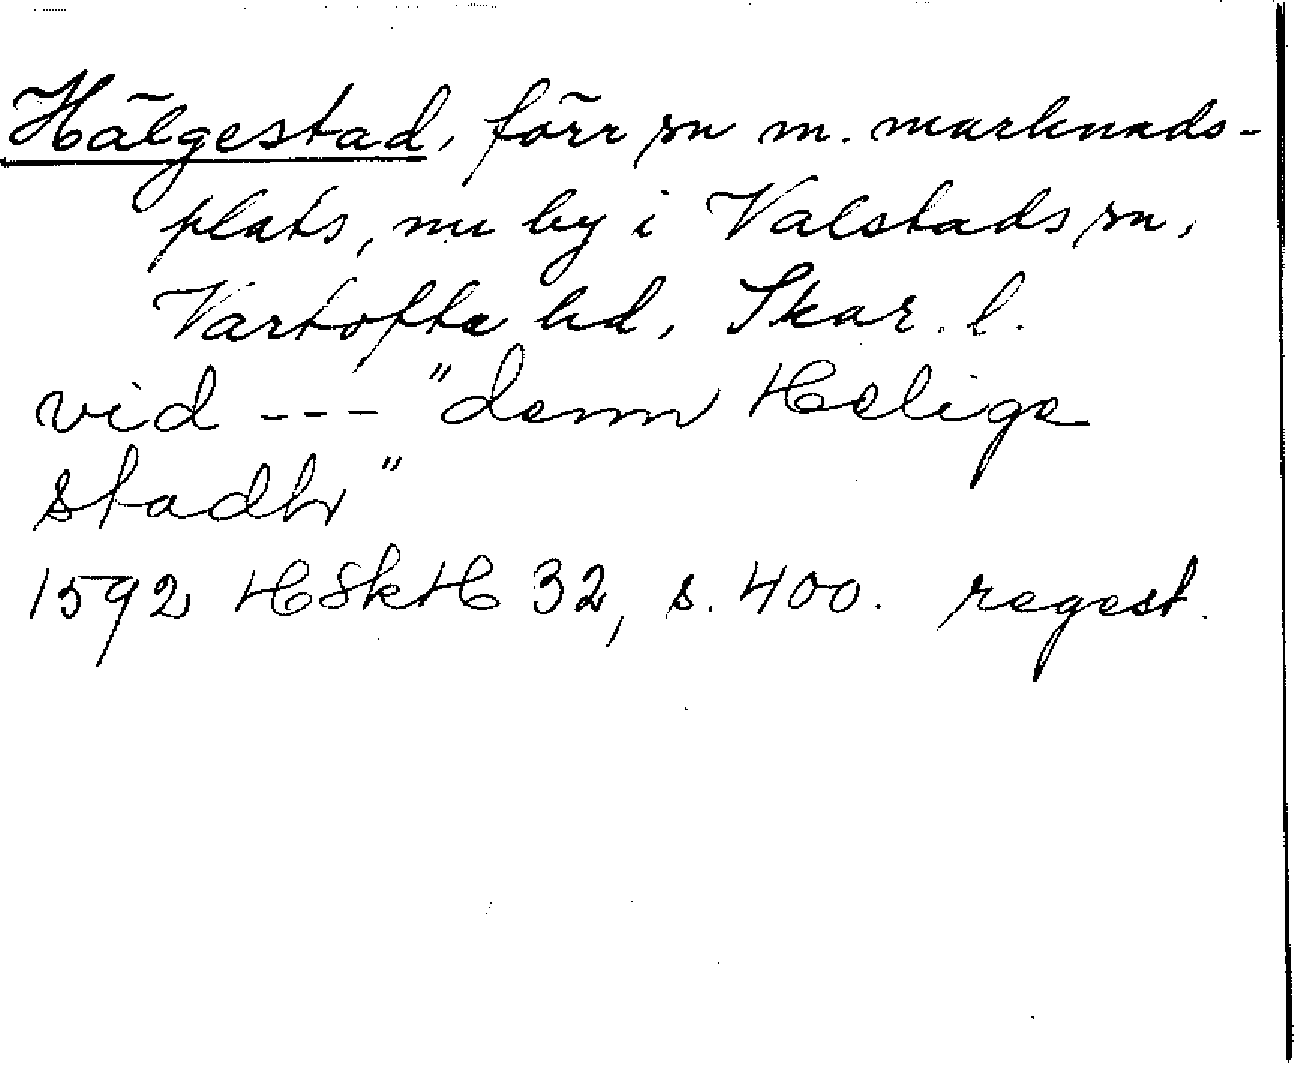 Hälgestad, förr sn m. marknads-
plats, nu by i Valstads sn,
Vartofta hd, Skar. l.
vid --- "denn Helige
stadh"
1592 HSkH 32, s. 400. regest.